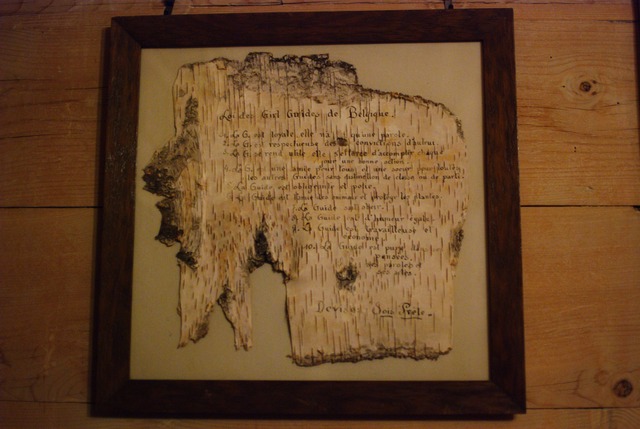 Loi des Girl Guides de Belgique.
1. La G. est loyale, elle n'a qu'une parole.
2. La G. est respectueuse des convictions d'autrui.
3. La G. se rend utile elle s'efforce d'accomplir chaque
jour une bonne action.
4. La G. est une amie pour tous et une sœur pour toutes
les autres Guides sans distinction de classe ou de parti.
La Guide est obligeante et polie.
La Guide est bonne les animaux et protège les plantes.
La Guide sait obéir.
La Guide est d'humeur égale.
9. La Guide est travailleuse et
économe.
10. La Guide est pure de
pensées,
de paroles et
des actes.
Devise: Sois Prête.